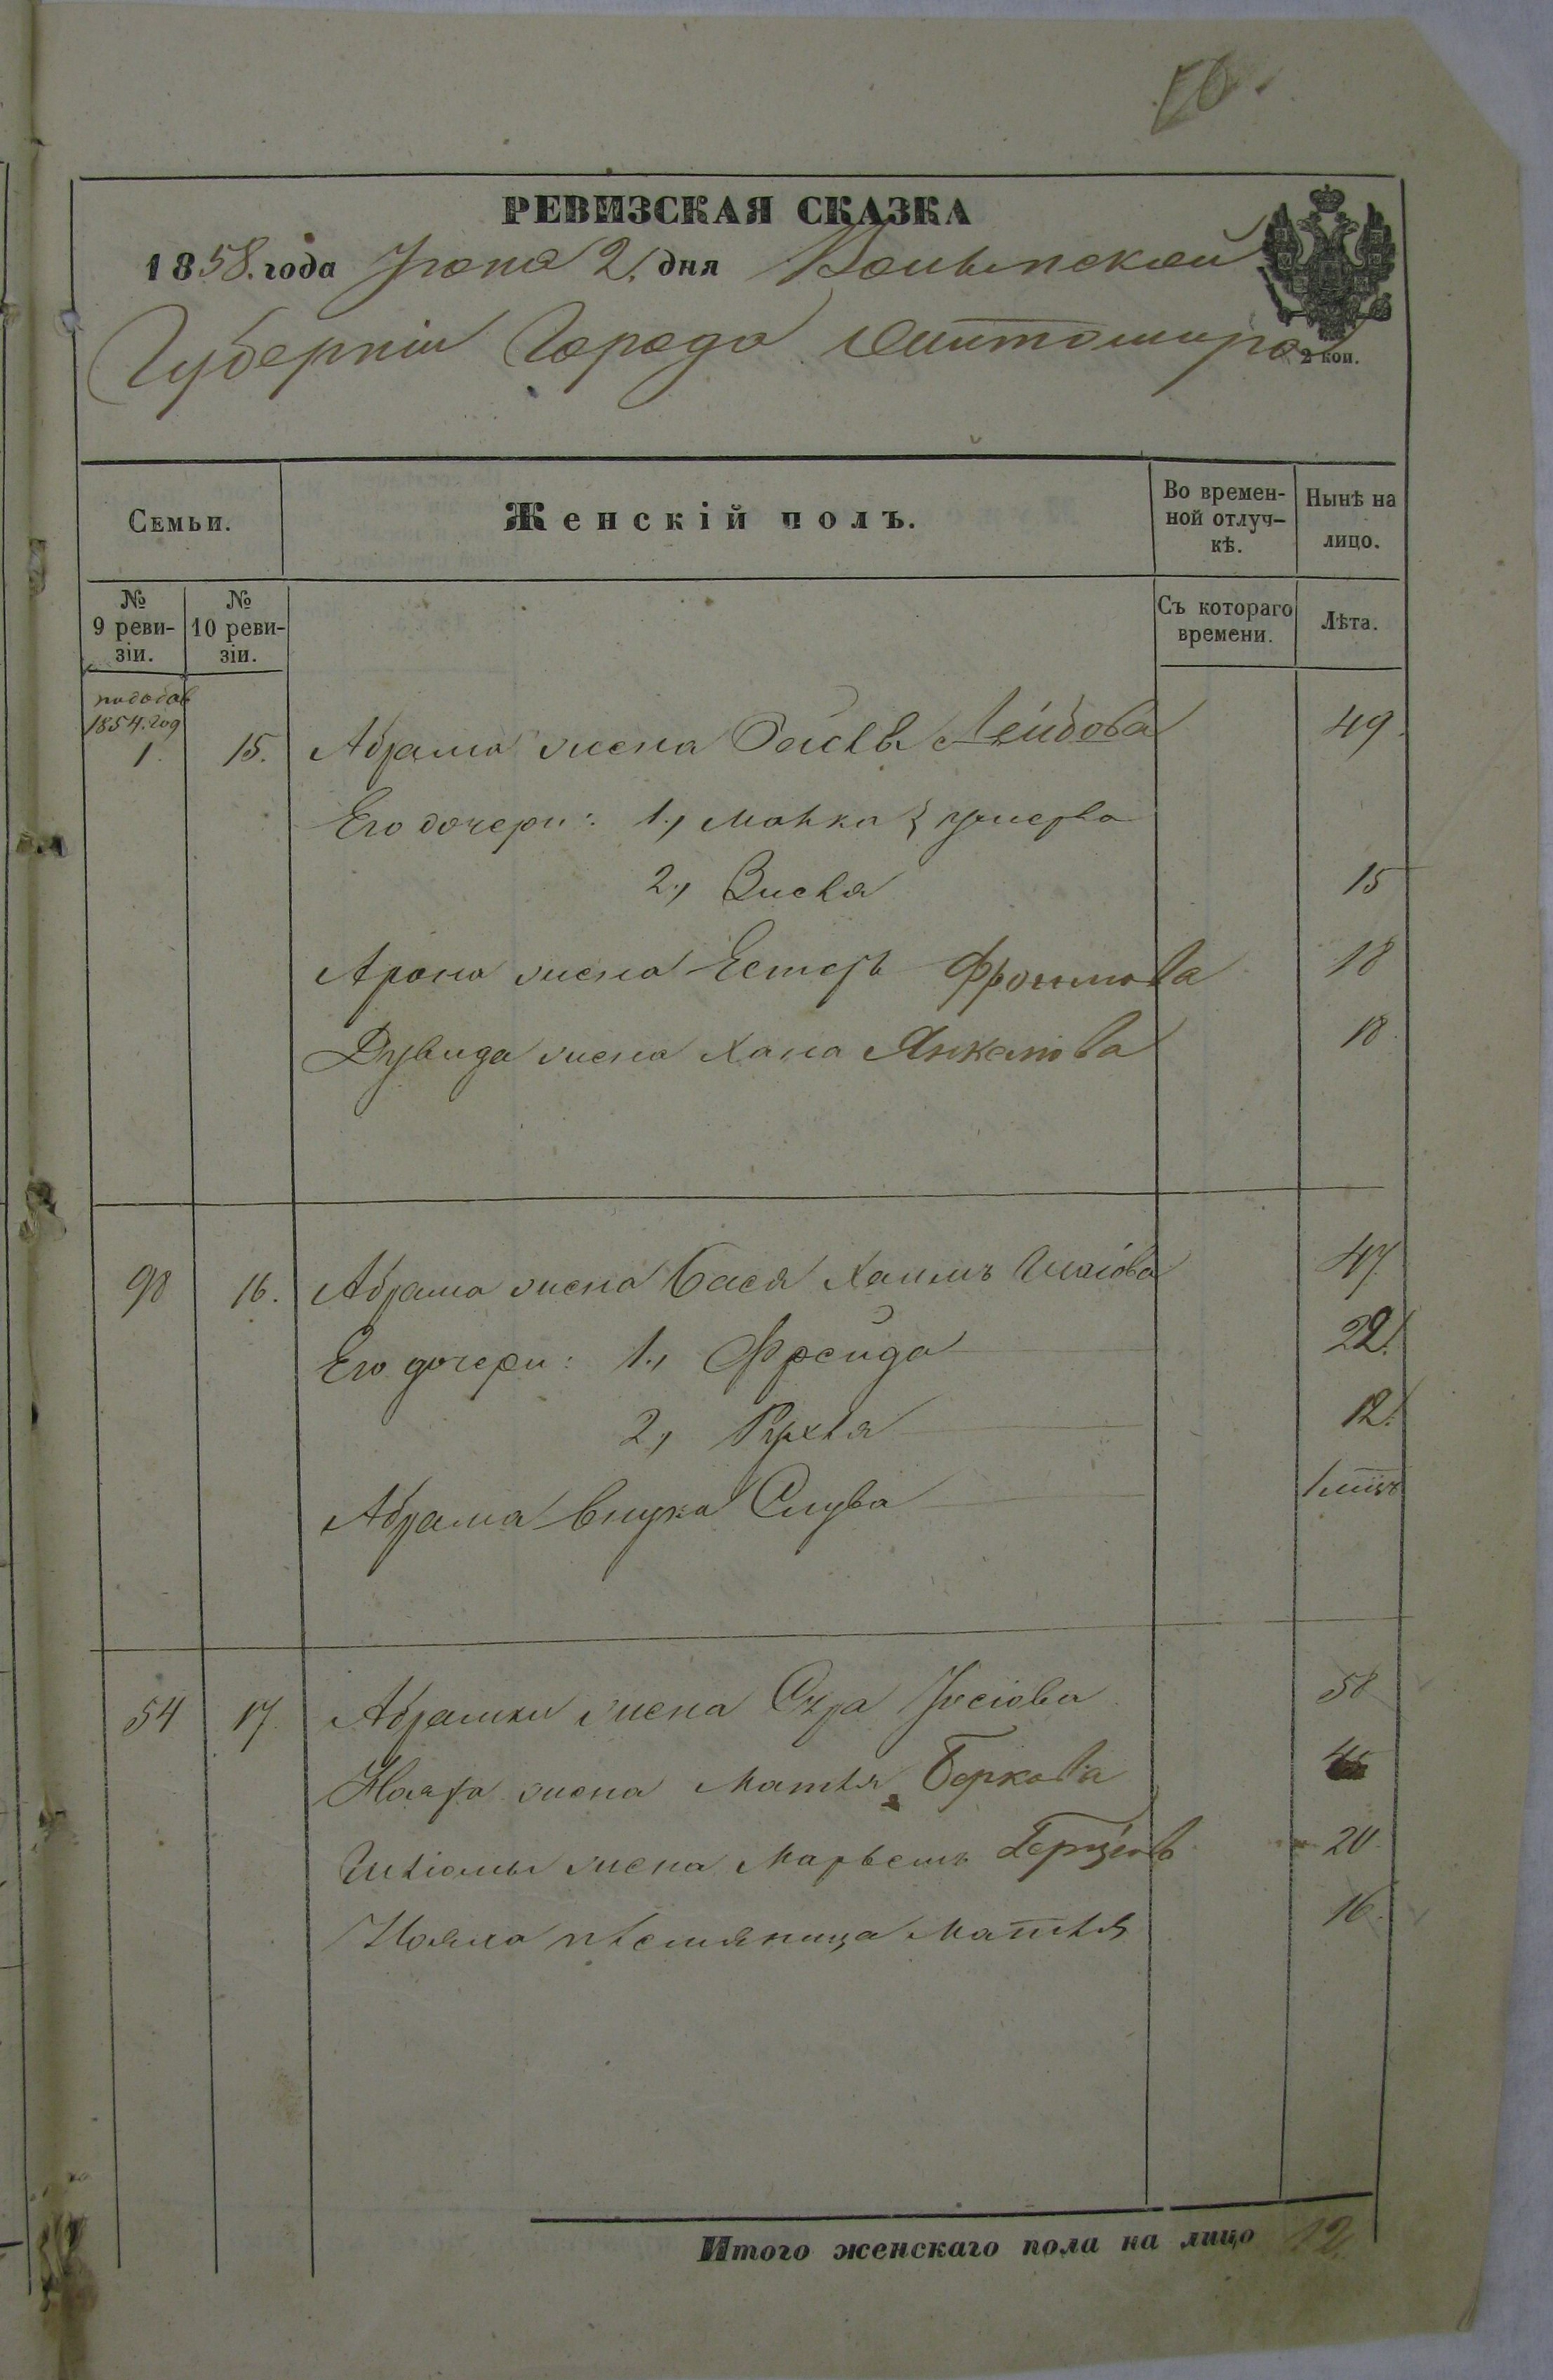 РЕВИЗСКАЯ СКАЗКА
1858. года Іюня 2. дня Волынской
Губерніи Города Житомира
2 коп.
Семьи.
Женскій полъ.
Во времен-
ной отлуч-
кѣ.
Нынѣ на
лицо.
№
9 реви-
зіи.
№
10 реви-
зіи.
Съ котораго
времени.
Лѣта.
1854. год
1. 15. Абрама жена Лейбова 49.
Его дочери: 1., умерла
2., 15
Арона жена Естеръ Фроимова 18
Дувида жена Хана Янкелева 18
98 16. Абрама жена Бася Хаимъ 47.
Его дочери: 1., Фрейда 22.
2., Рухля 12.
Абрама внука Слува
54 17 Абрамки жена Сура Іосіова 58
жена Матля Беркова
жена Марьемъ 20.
племяница Матля 16.
Итого женскаго пола на лицо 12.